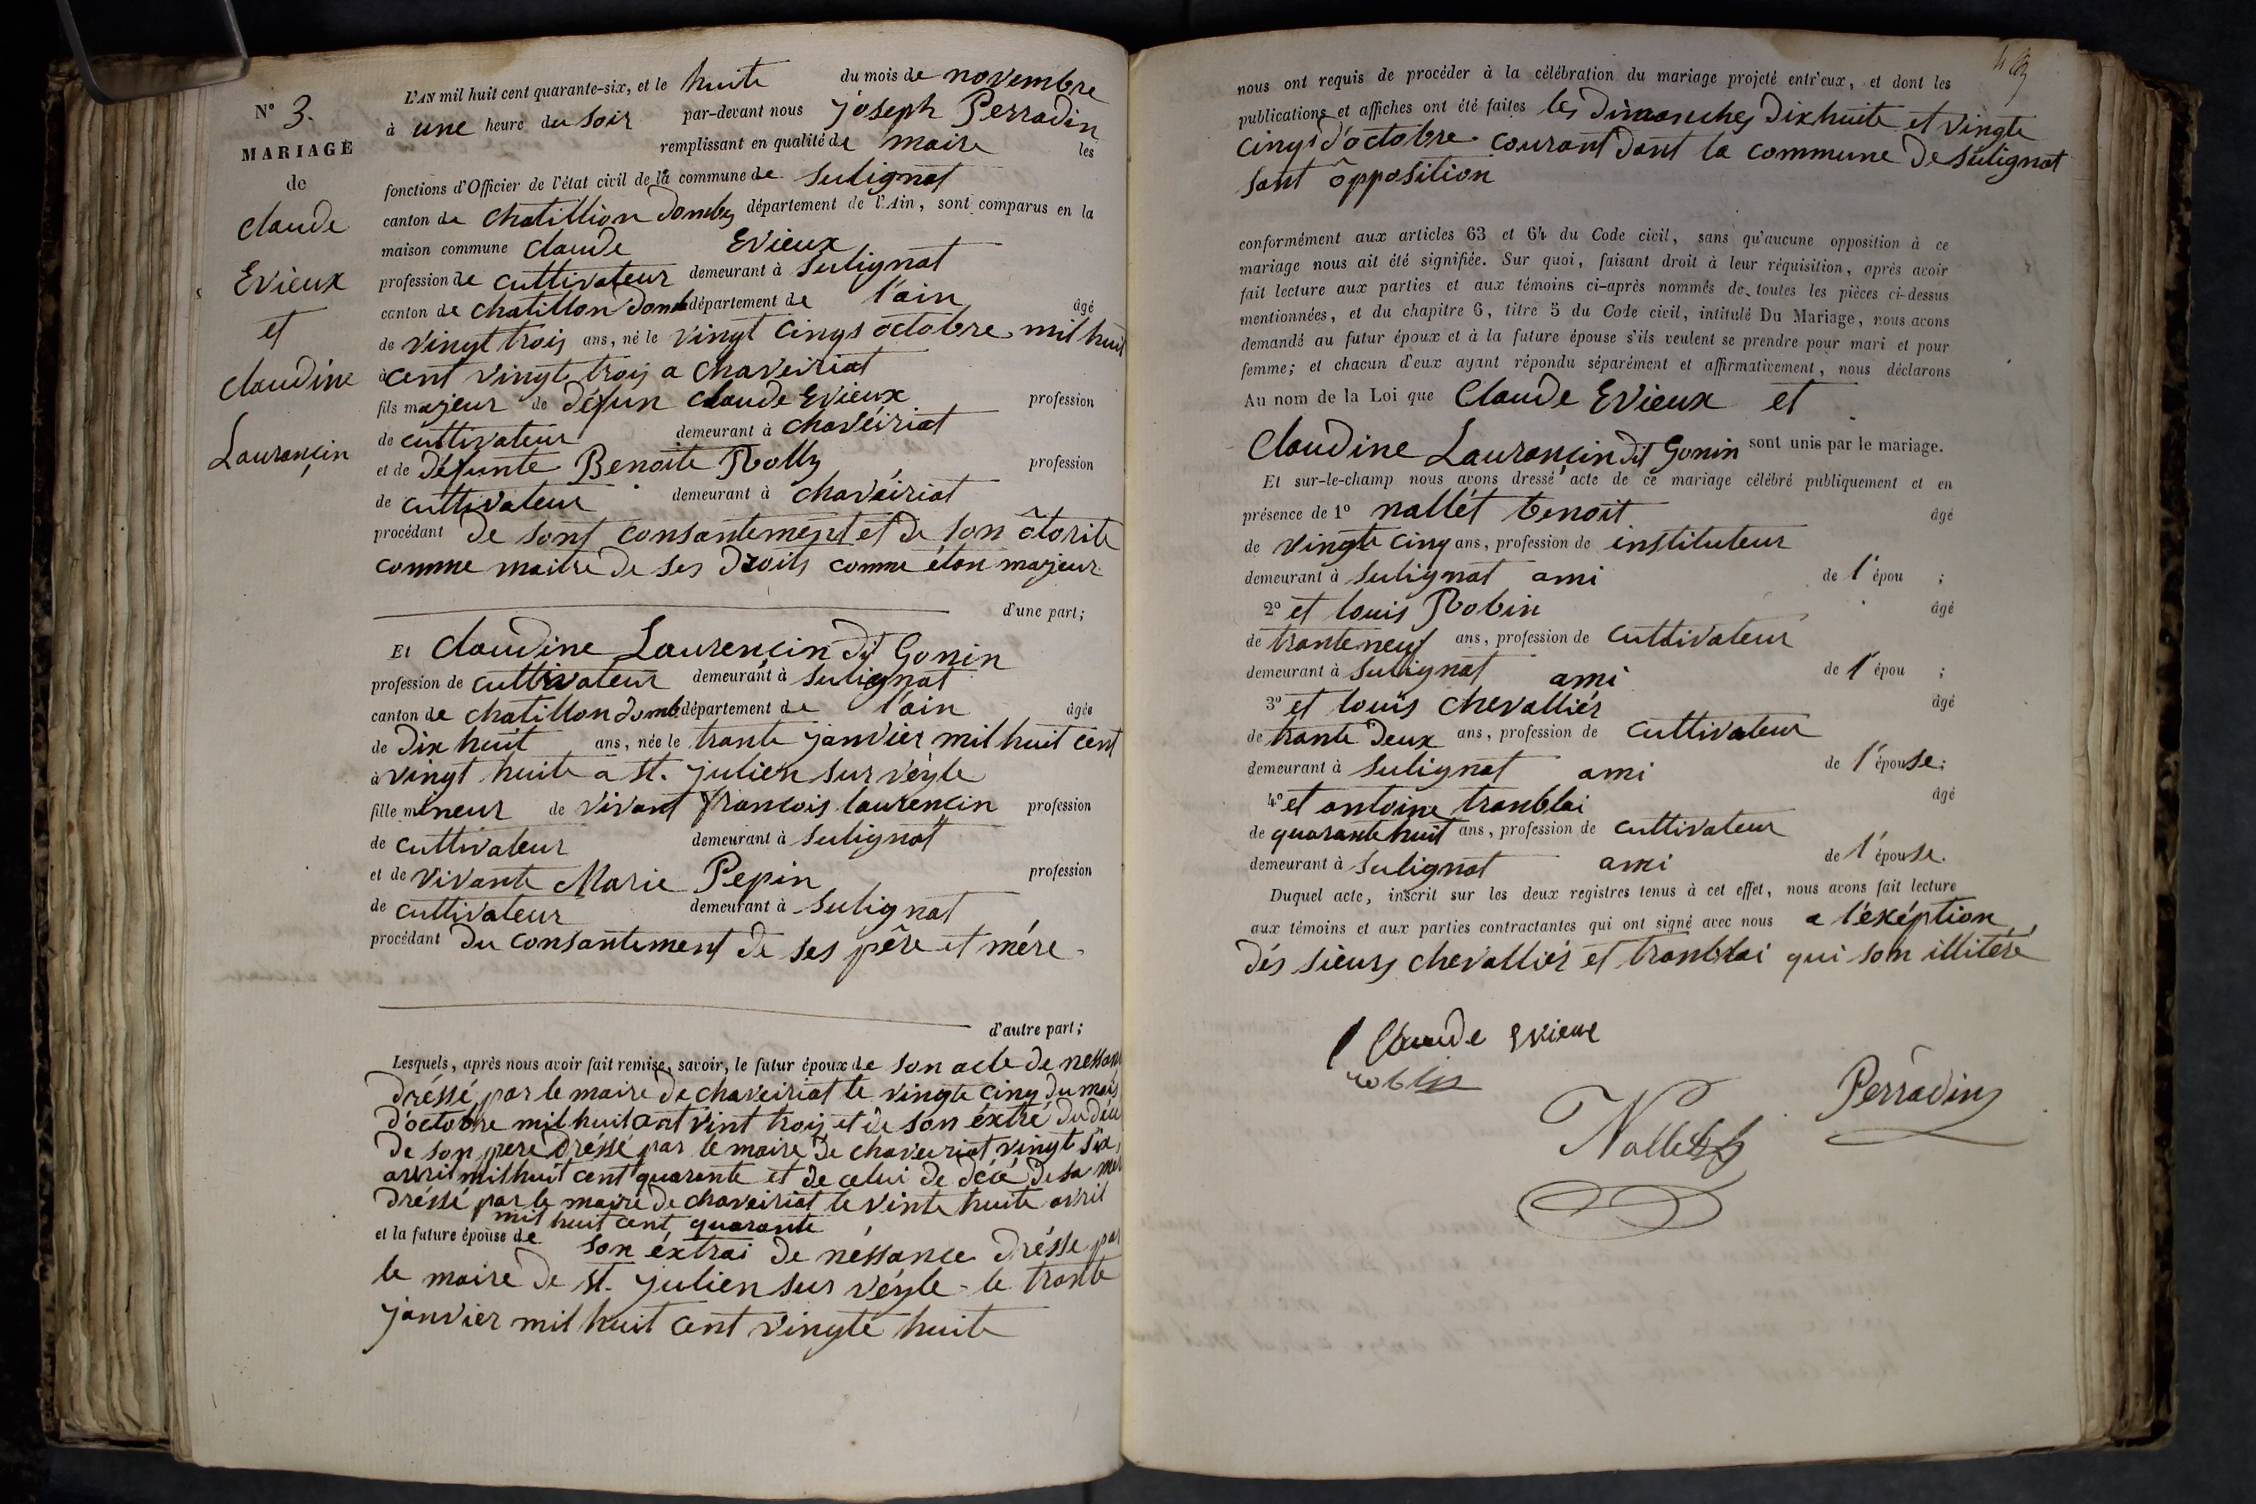 N° 3.
MARIAGE
de
Claude
Evieux
et
Claudine
Laurençin
L'AN mil huit cent quarante-six, et le huite du mois de novembre
à une heure du soir par-devant nous joseph Perradin
remplissant en qualité de maire les
fonctions d'Officier de l'état civil de la commune de Sulignat
canton de chatillion Dombes département de l'Ain, sont comparus en la
maison commune Claude Evieux
profession de cultivateur demeurant à Sulignat
canton de chatillon Domb département de l'ain âgé
de vingt trois ans, né le vingt cinqs octobre mil huit
à cent vingt trois a chaveiriat
fils majeur de défun Claude Evieux profession
de cultivateur demeurant à chavéiriat
et de défunte Benoite Rolly profession
de cultivateur demeurant à chavéiriat
procédant de sont consantement et de son ôtorite
comme maitre de ses droits comme étan majeur
d'une part;
Et Claudine Laurençin dit Gonin
profession de cultivateur demeurant à Sulignat
canton de chatillon Domb département de l'ain âgée
de dix huit ans, née le trante janvier mil huit cent
à vingt huite a st. julien sur véyle
fille mineur de vivant françois laurençin profession
de cultivateur demeurant à Sulignat
et de vivante Marie Pepin profession
de cultivateur demeurant à Sulignat
procédant du consantement de ses pêre et mére
d'autre part;
Lesquels, après nous avoir fait remise, savoir, le futur époux de son acte de nessan
dréssé par le maire de chaveiriat le vingte cinq du mois
d'octobre mil huit cent vint trois et de son éxtré du déce
de son pere dréssé par le maire de chaveiriat vingt six
avril mil huit cent quarante et de celui de décé de sa mer
dréssé par le maire de chaveiriat le vinte huite avril
mil huit cent quarante
et la future épouse de son éxtrai de néssance drésse par
le maire de st. julien sur véyle le trante
janvier mil huit cent vingte huite
nous ont requis de procéder à la célébration du mariage projeté entr'eux, et dont les
publications et affiches ont été faites les dimanches dix huite et vingte
cinqs d'octobre courant dant la commune de Sulignat
sant ôpposition
conformément aux articles 63 et 64 du Code civil, sans qu'aucune opposition à ce
mariage nous ait été signifiée. Sur quoi, faisant droit à leur réquisition, après avoir
fait lecture aux parties et aux témoins ci-après nommés de toutes les pièces ci-dessus
mentionnées, et du chapitre 6, titre 5 du Code civil, intitulé Du Mariage, nous avons
demandé au futur époux et à la future épouse s'ils veulent se prendre pour mari et pour
femme; et chacun d'eux ayant répondu séparément et affirmativement, nous déclarons
Au nom de la Loi que Claude Evieux et
Claudine Laurançin dit Gonin sont unis par le mariage.
Et sur-le-champ nous avons dressé acte de ce mariage célébré publiquement et en
présence de 1° nallét benoit âgé
de vingte cinq ans, profession de instituteur
demeurant à Sulignat ami de l' épou ;
2° et louis Robin âgé
de trante neuf ans, profession de cultivateur
demeurant à Sulignat ami de l' épou ;
3° et louis chevalliér âgé
de trante deux ans, profession de cultivateur
demeurant à Sulignat ami de l' épouse;
4° et antoine tranblai âgé
de quarante huit ans, profession de cultivateur
demeurant à Sulignat ami de l' épouse.
Duquel acte, inscrit sur les deux registres tenus à cet effet, nous avons fait lecture
aux témoins et aux parties contractantes qui ont signé avec nous a l'éxéption
dés sieurs chevalliér et tranblai qui son illitéré
Claude Evieux
robin
Perradin
Nallet